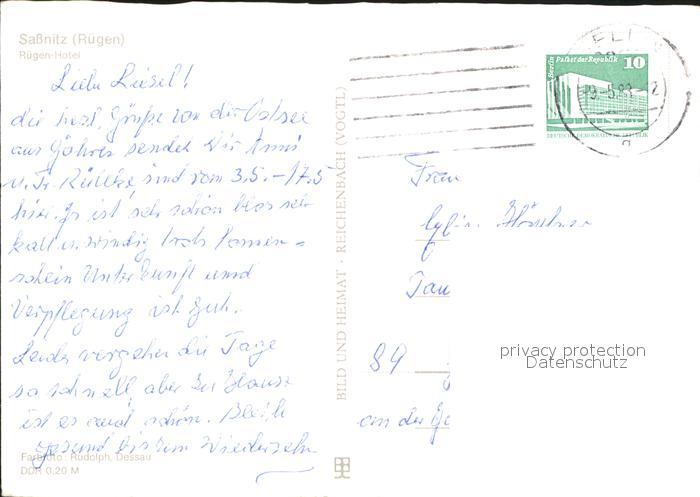 Saßnitz (Rügen)
Rügen-Hotel
Liebe Liesel!
die herzl. Grüße von der Ostsee
aus Göhren sendet Dir Anni
u. Fr. sind vom 3.5. – 17.5
hier. Es ist sehr schön blos sehr
kalt u. windig trotz Sonnen =
schein Unterkunft und
Verpflegung ist gut.
Leider vergehen die Tage
so schnell, aber zu Hause
ist es auch schön. Bleib
gesund bis zum Wiedersehn
Farbfoto: Rudolph, Dessau
DDR 0,20 M
BILD UND HEIMAT · REICHENBACH (VOGTL)
Berlin Palast der Republik
10
DEUTSCHE DEMOKRATISCHE REPUBLIK
Frau
Tau
89
an der
privacy protection
Datenschutz